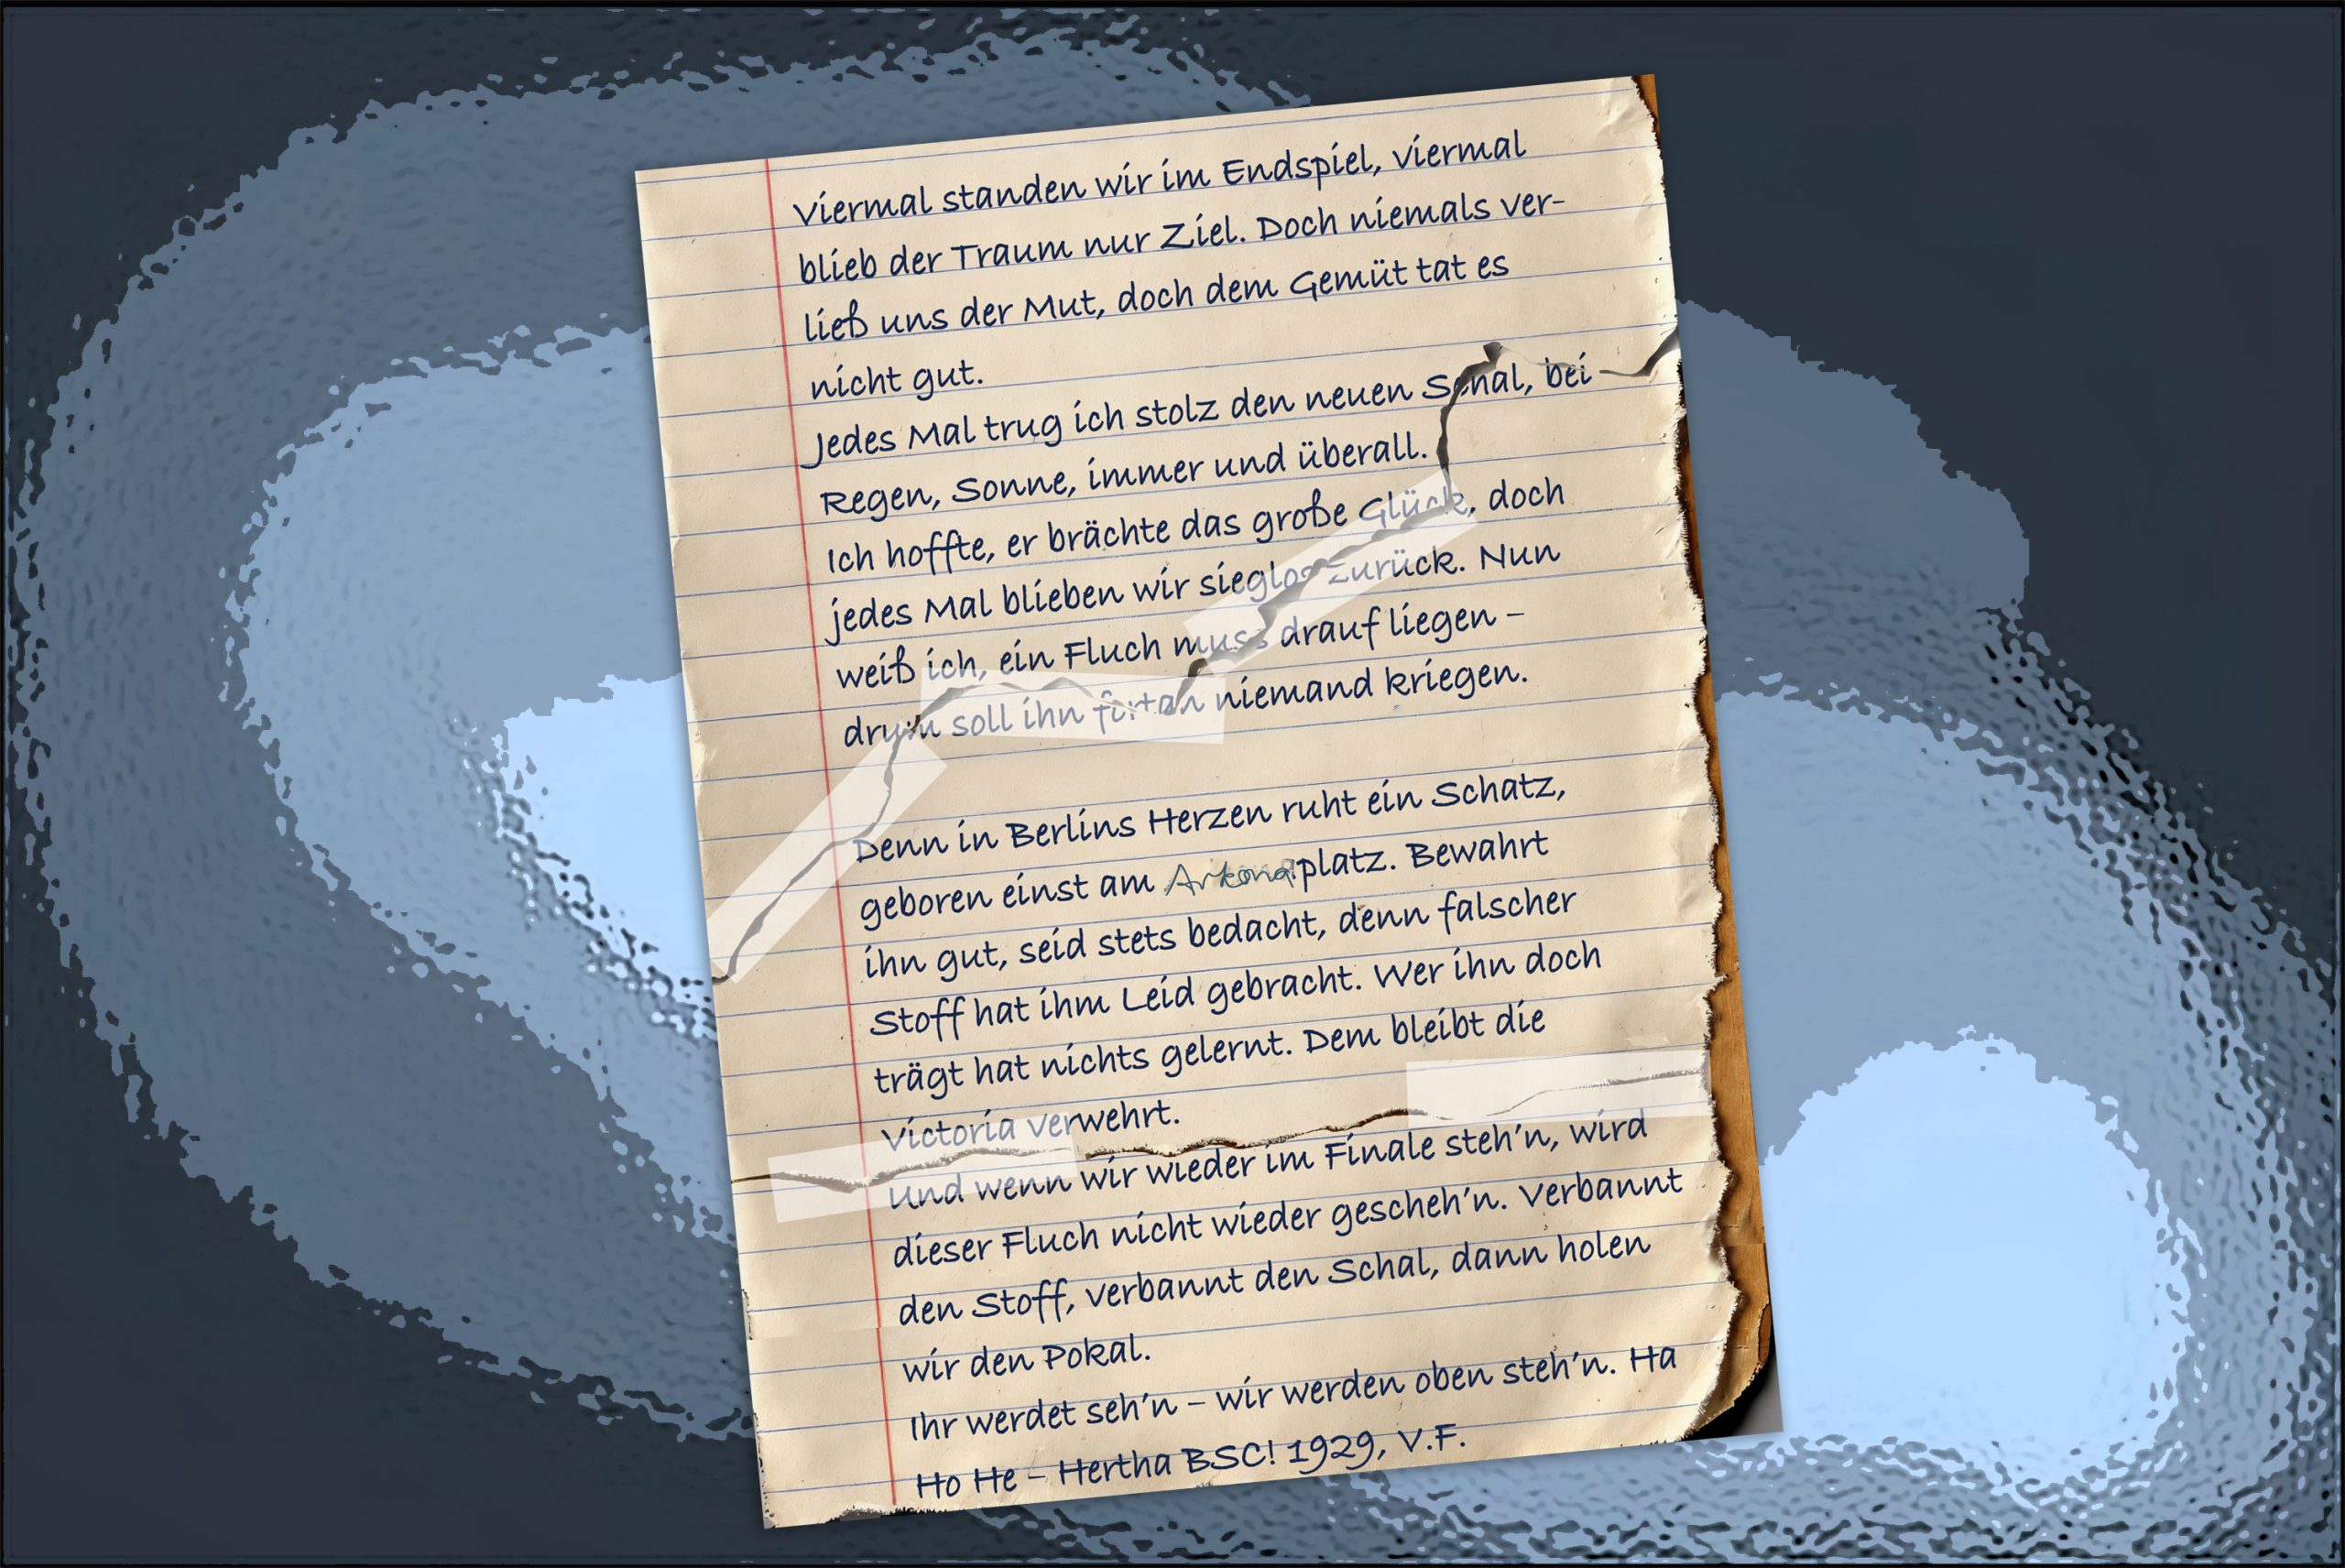 Viermal standen wir im Endspiel, viermal
blieb der Traum nur Ziel. Doch niemals ver-
ließ uns der Mut, doch dem Gemüt tat es
nicht gut.
Jedes Mal trug ich stolz den neuen Schal, bei
Regen, Sonne, immer und überall.
Ich hoffte, er brächte das große Glück, doch
jedes Mal blieben wir sieglos zurück. Nun
weiß ich, ein Fluch muss drauf liegen –
drum soll ihn fortan niemand kriegen.
Denn in Berlins Herzen ruht ein Schatz,
geboren einst am Arkonaplatz. Bewahrt
ihn gut, seid stets bedacht, denn falscher
Stoff hat ihm Leid gebracht. Wer ihn doch
trägt hat nichts gelernt. Dem bleibt die
Victoria verwehrt.
Und wenn wir wieder im Finale steh'n, wird
dieser Fluch nicht wieder gescheh'n. Verbannt
den Stoff, verbannt den Schal, dann holen
wir den Pokal.
Ihr werdet seh'n – wir werden oben steh'n. Ha
Ho He – Hertha BSC! 1929, V.F.